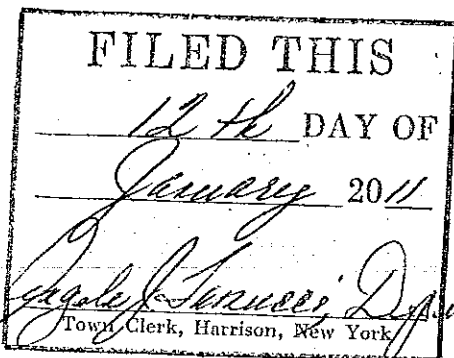 FILED THIS
12th DAY OF
January 2011
Town Clerk, Harrison, New York